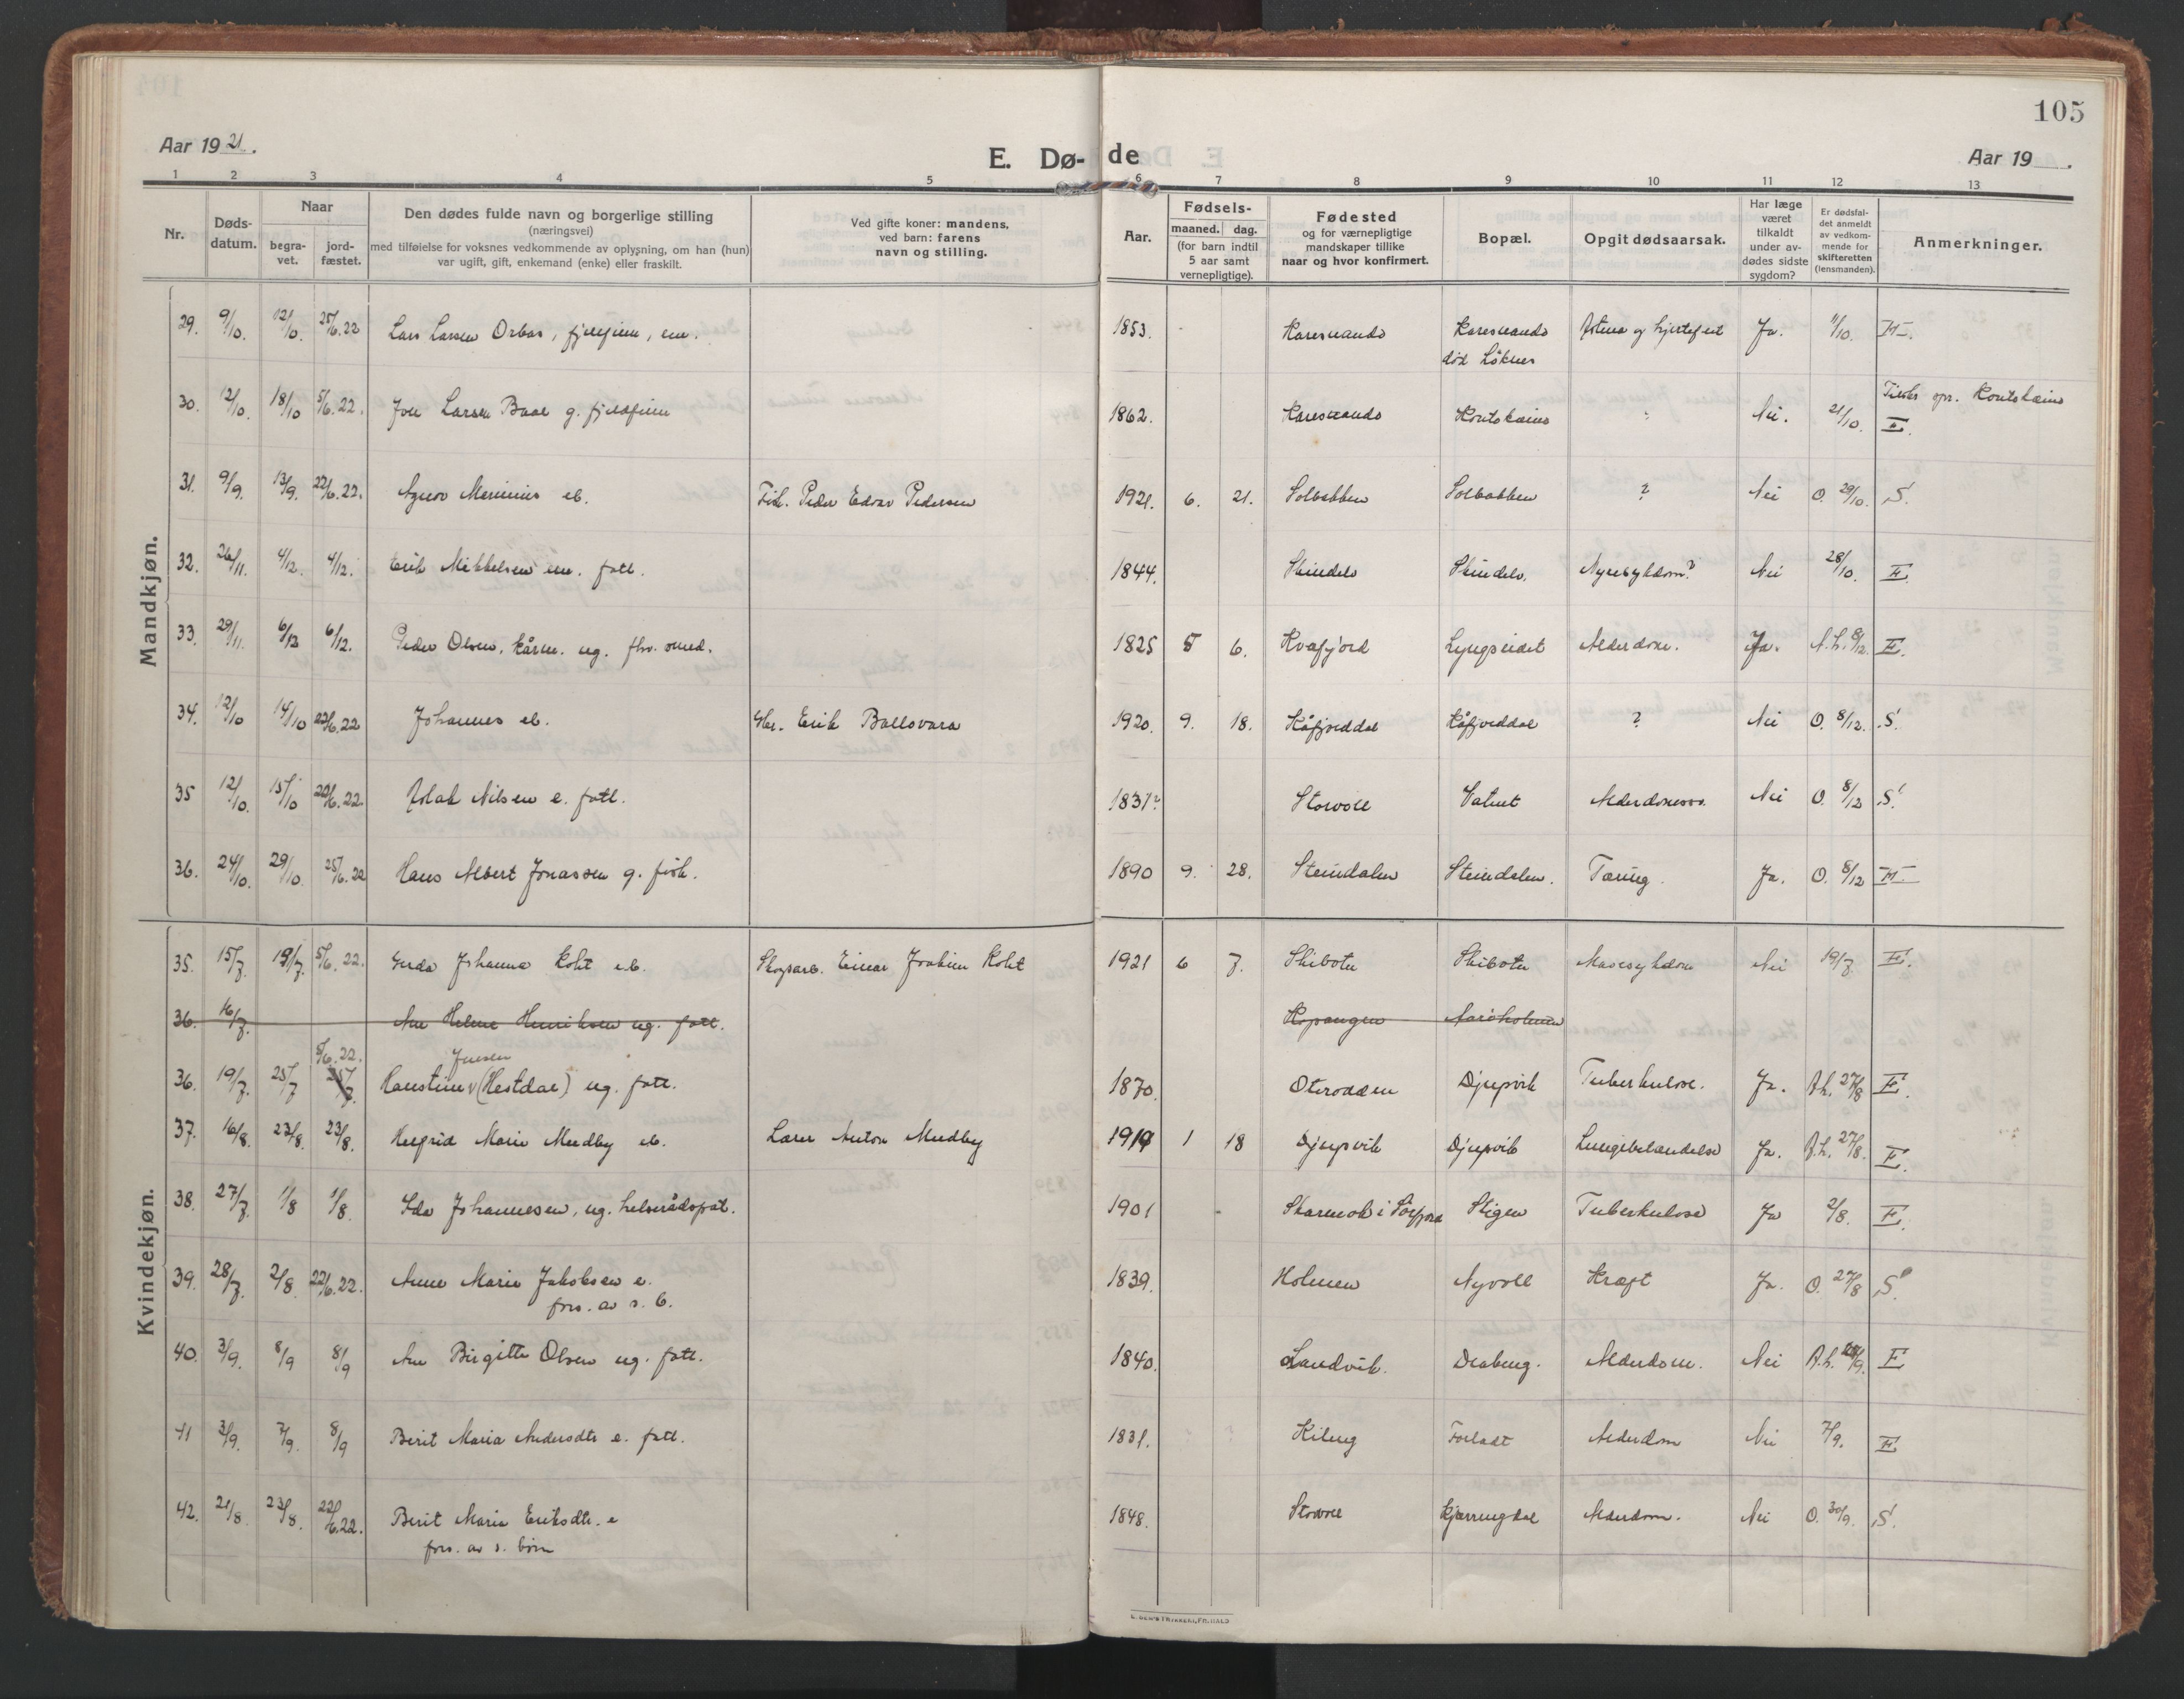 105
Aar 19 21.
E. Dø-
de
Aar 19 .
1 2 3 4 5 6 7 8 9 10 11 12 13
Nr.
Døds-
datum.
Naar
begra-
vet.
jord-
fæstet.
Den dødes fulde navn og borgerlige stilling
(næringsvei)
med tilføielse for voksnes vedkommende av oplysning, om han (hun)
var ugift, gift, enkemand (enke) eller fraskilt.
Ved gifte koner: mandens,
ved barn: farens
navn og stilling.
Aar.
Fødsels-
maaned. dag.
(for barn indtil
5 aar samt
vernepligtige).
Fødested
og for værnepligtige
mandskaper tillike
naar og hvor konfirmert.
Bopæl.
Opgit dødsaarsak.
Har læge
været
tilkaldt
under av-
dødes sidste
sygdom?
Er dødsfal-
det anmeldt
av vedkom-
mende for
skifteretten
(lensmanden).
Anmerkninger.
Mandkjøn.
29. 9/10. 12/10. 25/6.22 Lars Larsen Orbas, fjeldfinn, em. 1853. Karesuando Karesuando Astma og hjertefeil Ja. 11/10.
død Løknes
30. 12/10. 18/10 5/6.22. Jon Larsen Baal g. fjeldfinn 1862. Karesuando Koutokeino Nei. 21/10. Koutokeino
31. 9/9. 13/9. 22/6.22. Marinius eb. Fisk. Peder Edvar Pedersen 1921. 6. 21. Solbakken Solbakken ? Nei O. 29/10. S.
32. 26/11. 4/12. 4/12. Erik Mikkelsen em. fatt. 1844. Skindelv Skindelv. Nyresykdom? Nei 28/10. E.
33. 29/11. 6/12 6/12. Peder Olsen, kårm. ug. fhv. smed. 1825 5 6. Kvæfjord Lyngseidet Alderdom. Ja. A.h. 8/12. E.
34. 12/10 14/10 22/6.22 Johannes eb. Gbr. Erik Ballovara 1920. 9. 18. Kåfjorddal Kåfjorddal ? Nei O. 8/12. S.
35 12/10. 15/10 20/6.22. Isak Nilsen e. fatt. 1831? Storvoll Vatnet Nei O. 8/12 S.
36. 24/10. 29/10. 25/6.22 Hans Albert Jonassen g. fisk. 1890 9. 28. Steindalen Steindalen. Tæring. Ja. O. 8/12
Kvindekjøn.
35. 15/7. 19/7. 5/6.22. Gerda Johanna Koht eb. Skogsarb. Einar Joakim Koht 1921 6 7. Skibotn Skibotn Mavesykdom Nei 19/7. E.
36. 16/7. Ane Helene Henriksen ug. fatt. Kopangen Aarøholmen
5/6.22. Jensen
36. 19/7. 25/7 25/7. Hanstine v (Hestdal) ug. fatt. 1870. Oterodden Djupvik Tuberkulose. Ja. A.h. 27/8 E.
37. 16/8. 23/8. 23/8. Marie Mudby eb. Lærer Anton Mudby 1919 1 18 Djupvik Djupvik Lungebetændelse Ja. A.h. 27/8. E.
38. 27/7. 1/8 1/8. Ida Johannesen, ug. helserådspat. 1901 Skarmok i Sørfjord Stigen Tuberkulose Ja 2/8. E.
39. 28/7. 2/8. 22/6.22. Anne Marie Jakobsen e. 1839. Holmen Nyvoll Kræft Ja. O. 27/8 S.
fors. av s. b.
40. 3/9. 8/9 8/9 Ane Birgitte Olsen ug. fatt. 1840. Sandvik. Draberg. Alderdom. Nei A.h. E
41 3/9. 7/9. 8/9 Berit Maria Andersdtr e. fatt. 1831. Kileng Forladt Alderdom Nei 7/9. E.
42. 21/8. 23/8. 22/6.22. Berit Maria Eriksdtr. e 1848. Storvoll Kjerringdal Alderdom. Nei O. 30/9. S.
fors. av s. børn